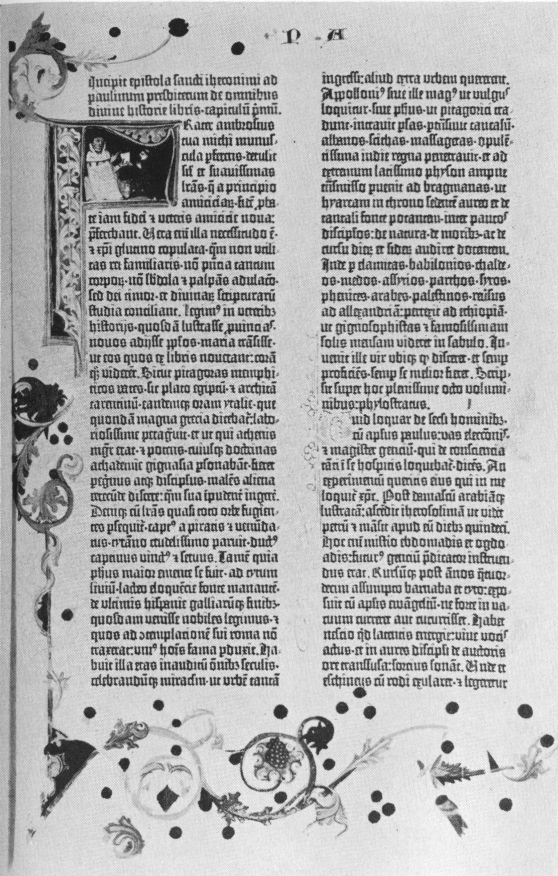 Incipit epistola sancti iheronimi ad
paulinum presbiterum de omnibus
divine historie libris. capitulũ pⁱmũ.
Frater ambrosius
tua michi munus-
cula pferens. detulit
sił et suavissimas
lrãs. q̃ a principio
amiciciaꝝ. fidẽ pba-
te iam fidei ⁊ veteris amicicie nova:
pferebant. Vera eñ illa necessitudo ẽ.
⁊ xpi glutino copulata. qm non vtili-
tas rei familiaris. nõ pñcia tantum
corpoꝝ. nõ sbdola ⁊ palpãs adulacõ.
sed dei timor. et divinaꝝ scripturarũ
studia conciliant. Legimꝰ in veterib⁊
historijs. quosdã lustrasse ꝓuincias.
novos adijsse pplos. maria trãsisse.
ut eos quos ex libris noverant: corã
qꝫ viderẽt. Sicut pitagoras memphi-
ticos vates. sic plato egiptũ. ⁊ architã
tarentinũ. eandemqꝫ oram ytalie. que
quondã magna grecia dicebat᷑: labo-
riosissime peragrauit. et ut qui athenis
mgr̃ erat. ⁊ potens. cuiusqꝫ doctrinas
achademie gignasia psonabãt. fieret
pegrinus atqꝫ discipulus. malẽs aliena
verecũde discere: qm sua ipudent᷑ ingerẽ.
Deniqꝫ cũ lrãs quasi toto orbe fugien-
tes psequit᷑. captꝰ a piratis ⁊ venũda-
tus. tyrãno crudelissimo paruit. ductꝰ
captiuus vinctꝰ ⁊ seruus. Tamẽ quia
phus maior emente se fuit. ad tytum
liuiũ. lacteo eloquẽcie fonte manantẽ.
de vltimis hispanie galliarũqꝫ finib⁊.
quosdam venisse nobiles legimus. ⁊
quos ad cõtemplacionẽ sui roma nõ
traxerat: vniꝰ hoĩs fama pduxit. Ha-
buit illa etas inauditũ õnib⁊ seculis.
celebrandũqꝫ miraclm. ut urbẽ tantã
ingressi: aliud extra urbem quererent.
Appolloniꝰ siue ille magꝰ ut vulgus
loquitur. siue phus. ut pitagorici tra-
dunt. intrauit psas. ptrãsiuit caucasũ.
albanos. scithas. massagetas. opulẽ-
tissima indie regna penetrauit. et ad
extremum latissimo physon ampne
trãsmisso puenit ad bragmanas. ut
hyarcam in throno sedentẽ aureo et de
tantali fonte potantem. inter paucos
discipulos: de natura. de moribꝫ. ac de
cursu dieꝝ et sideꝝ audiret docentem.
Inde p elamitas. babilonios. chalde-
os. medos. assyrios. parthos. syros.
phenices. arabes. palestinos. reũsus
ad allexandriã: perrexit ad ethiopiã.
ut gignosophistas ⁊ famosissimam
solis mensam videret in sabulo. In-
uenit ille vir vbiqꝫ qd disceret. et semp
proficiẽs. semp se melior fieret. Scrip-
sit super hoc plenissime octo volumi-
nibus: phylostratus.
Quid loquar de seculi hominib⁊.
cũ aplus paulus: vas electõnis.
⁊ magister genciũ. qui de consciencia
tãti i se hospitis loquebat᷑. dicẽs. An
experimentũ queritis eius qui in me
loquit᷑ xpc̃. Post damascũ arabiãqꝫ
lustratã: ascẽdit iherosolimã ut videt᷑
petrũ ⁊ mãsit apud eũ dieb⁊ quindeci.
Hoc eñi misterio ebdomadis et ogdo-
adis: futurꝰ genciũ pdicator instruen-
dus erat. Rursũqꝫ post ãnos qⁱtuor-
decim assumpto barnaba et tyto: expo-
suit cũ aplis ewãgeliũ. ne forte in va-
cuum curreret aut cucurrisset. Habet
nescio qd latentis energie: viue vocis
actus. et in aures discipuli de auctoris
ore transfusa: forcius sonat. Unde et
eschineus cũ rodi exularet. ⁊ legeretur